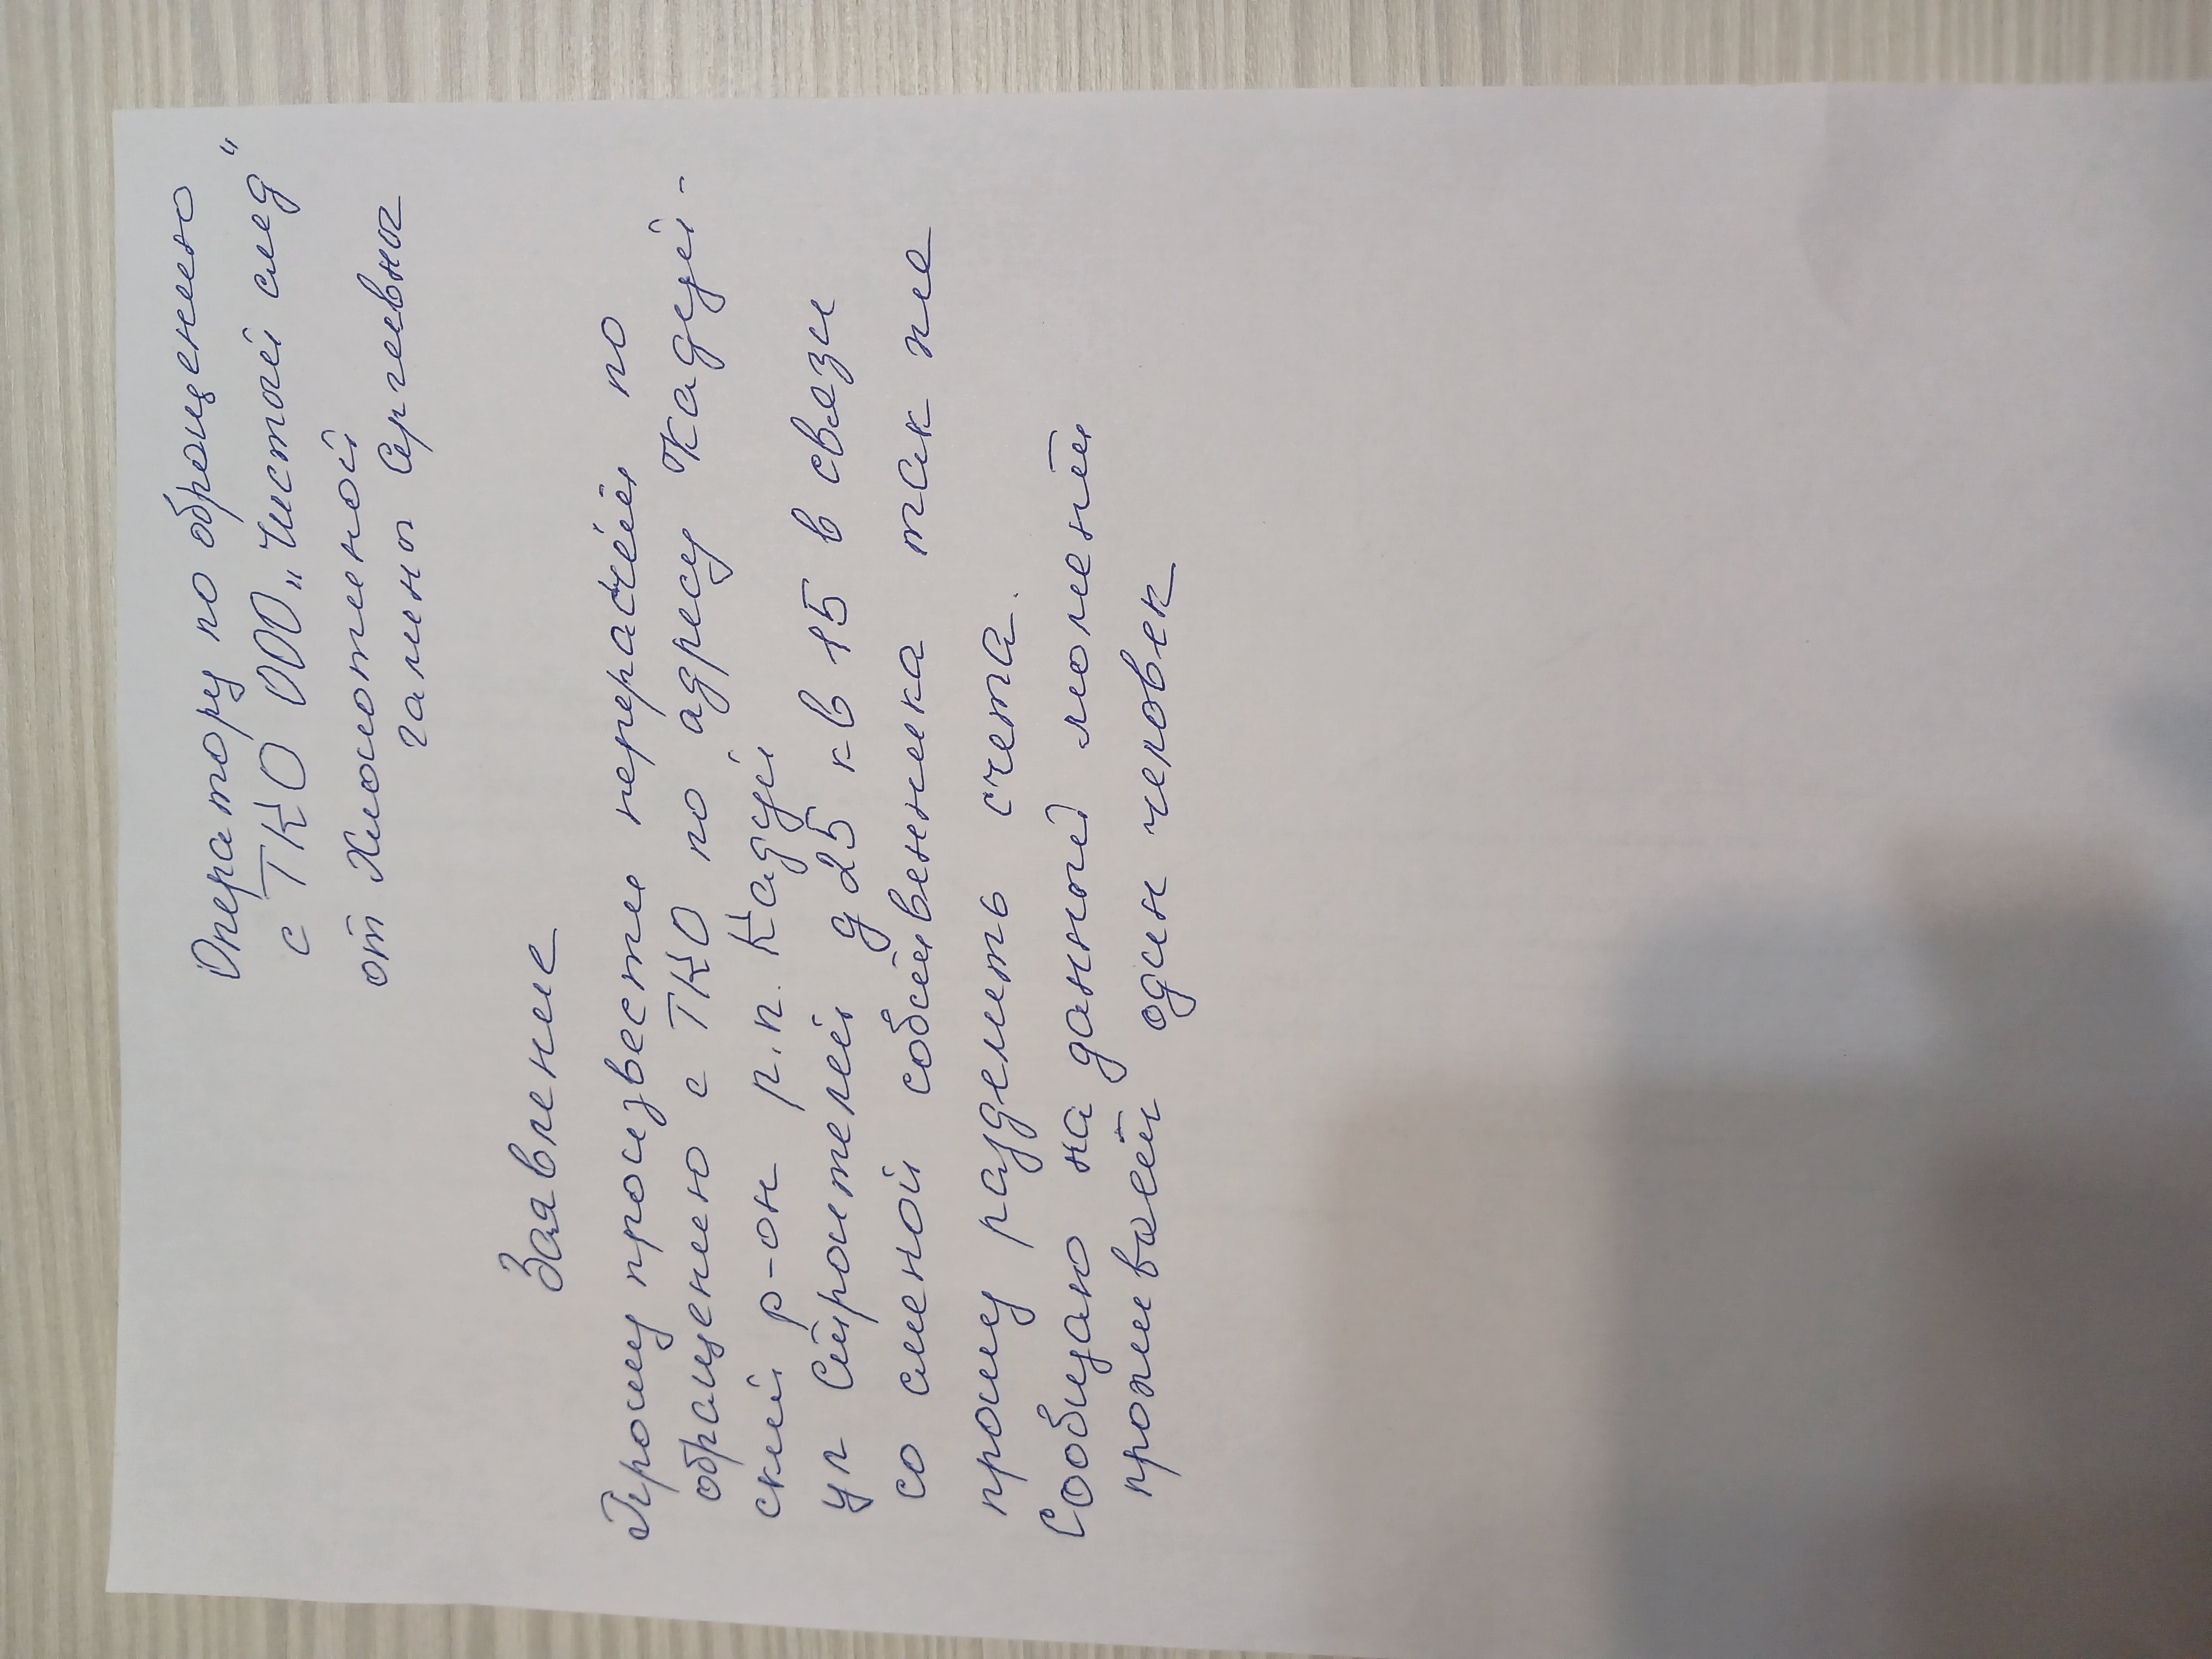 Оператору по обращению
с ТКО ООО „Чистый след"
от Хмиотиной
Галины Сергеевны
Заявление
Прошу произвести перерасчёт по
обращению с ТКО по адресу Кадуй-
ский р-он р.п. Кадуй
ул Строителей д 25 кв 15 в связи
со сменой собственника так же
прошу разделить счета.
Сообщаю на данный момент
проживает один человек